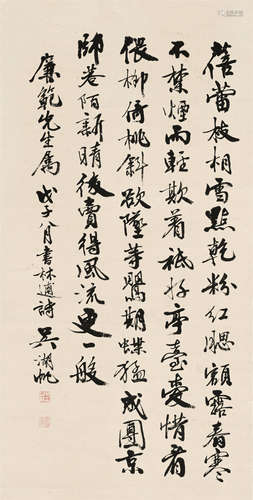 蓓蕾枝梢雪點乾粉紅腮額露春寒
不禁煙雨輕欺着祗好亭臺愛惜看
偎柳倚桃斜欲墮等鶯期蝶猛成團京
師巷陌新晴後賣得風流更一般
廉範先生屬 戊子八月書林逋詩 吳湖帆